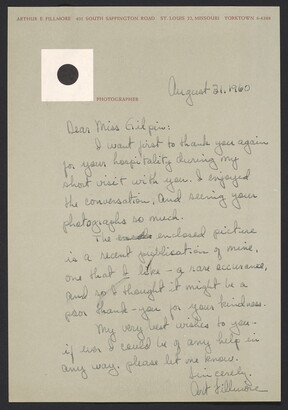 ARTHUR E. FILLMORE 401 SOUTH SAPPINGTON ROAD ST. LOUIS 31, MISSOURI YORKTOWN
PHOTOGRAPHER
August 21, 1960
Dear Miss Gilpin:
I want first to thank you again
for your hospitality during my
short visit with you. I enjoyed
the conversation, and seeing your
photographs so much.
The enclosed picture
is a recent publication of mine,
one that I like - a rare occurance,
and so I thought it might be a
poor thank-you for your kindness.
My very best wishes to you -
if ever I could be of any help in
any way, please let me know.
Sincerely,
Art Fillmore